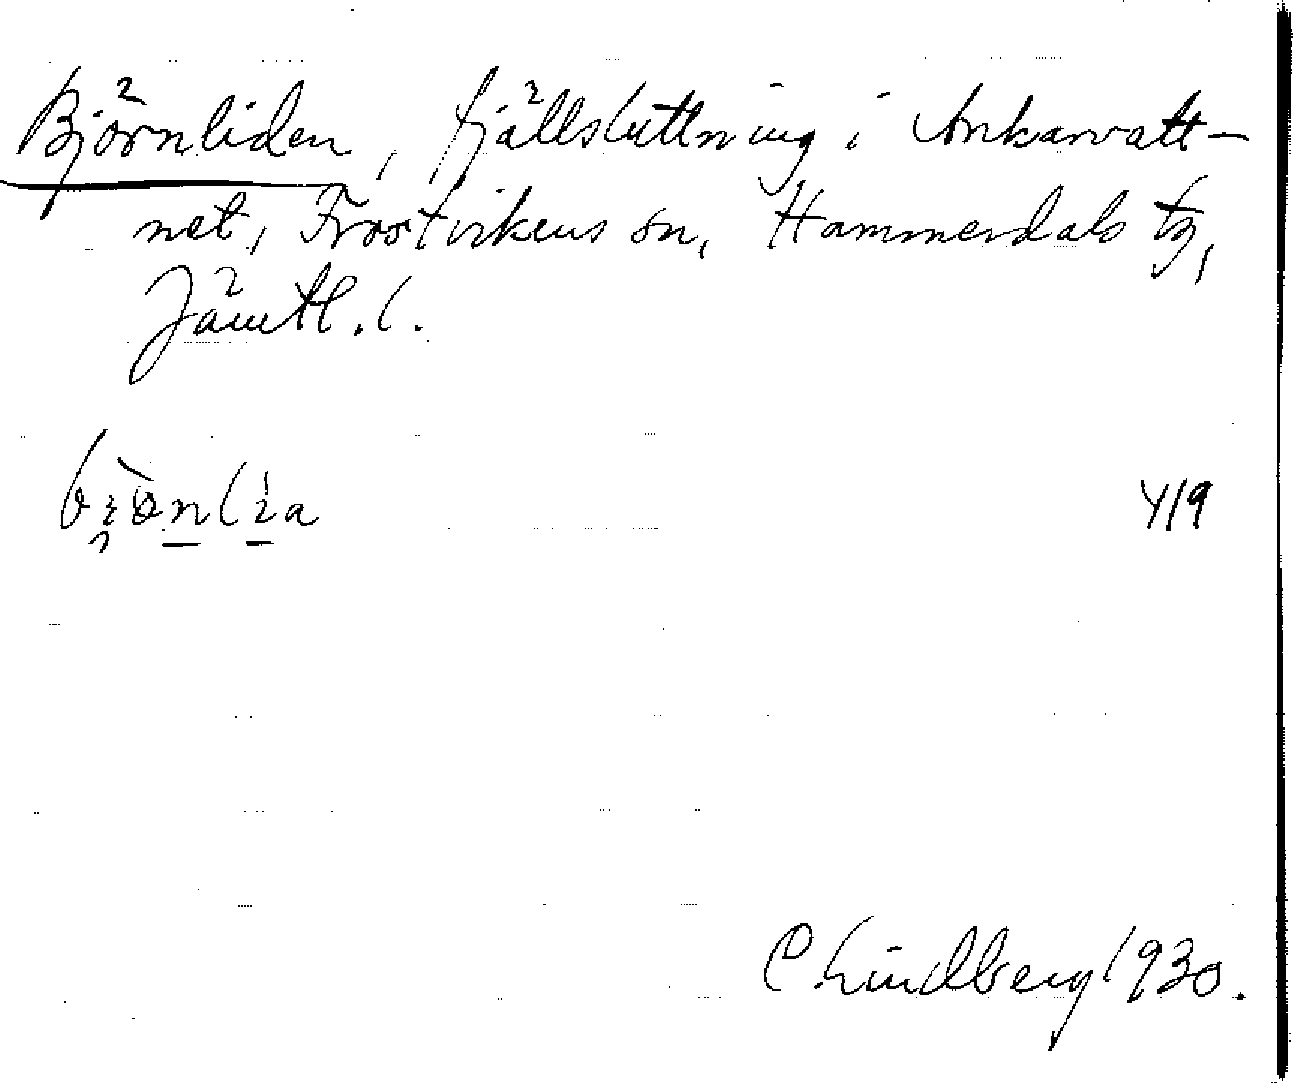 Björnliden, fjällsluttning i Ankarvatt-
net, Frostvikens sn, Hammerdals tg,
Jämtl. l.
419
C Lindberg 1930.